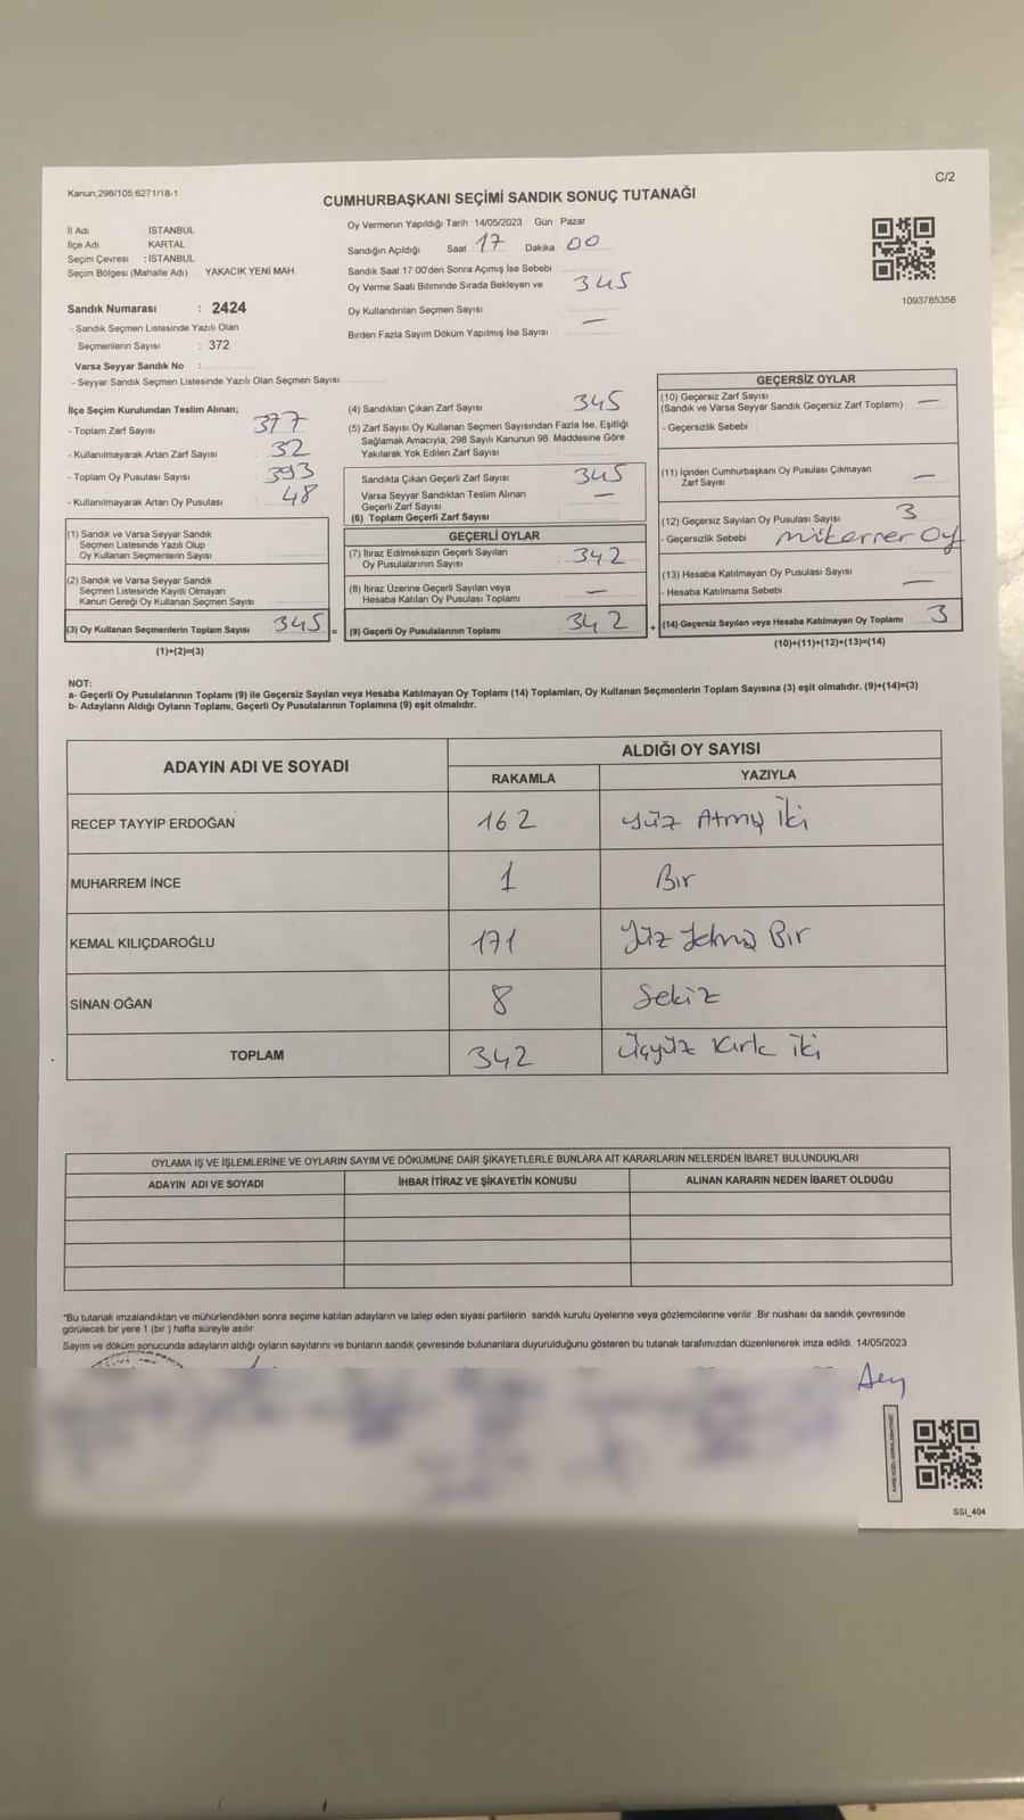 Kanun;298/105;6271/18-1
C/2
CUMHURBAŞKANI SEÇİMİ SANDIK SONUÇ TUTANAĞI
İl Adı İSTANBUL
İlçe Adı KARTAL
Seçim Çevresi : İSTANBUL
Seçim Bölgesi (Mahalle Adı) YAKACIK YENİ MAH.
Sandık Numarası : 2424
- Sandık Seçmen Listesinde Yazılı Olan
Seçmenlerin Sayısı : 372
Varsa Seyyar Sandık No :
- Seyyar Sandık Seçmen Listesinde Yazılı Olan Seçmen Sayısı
Oy Vermenin Yapıldığı Tarih :14/05/2023 Gün : Pazar
Sandığın Açıldığı Saat 17 Dakika 00
Sandık Saat 17 00'den Sonra Açmış İse Sebebi
Oy Verme Saati Bitiminde Sırada Bekleyen ve 345
Oy Kullandırılan Seçmen Sayısı
Birden Fazla Sayım Döküm Yapılmış İse Sayısı —
1093785358
İlçe Seçim Kurulundan Teslim Alınan;
- Toplam Zarf Sayısı 377
- Kullanılmayarak Artan Zarf Sayısı 32
- Toplam Oy Pusulası Sayısı 393
- Kullanılmayarak Artan Oy Pusulası 48
(1) Sandık ve Varsa Seyyar Sandık
Seçmen Listesinde Yazılı Olup
Oy Kullanan Seçmenlerin Sayısı
(2) Sandık ve Varsa Seyyar Sandık
Seçmen Listesinde Kayıtlı Olmayan
Kanun Gereği Oy Kullanan Seçmen Sayısı
(3) Oy Kullanan Seçmenlerin Toplam Sayısı 345 =
(1)+(2)=(3)
(4) Sandıktan Çıkan Zarf Sayısı 345
(5) Zarf Sayısı Oy Kullanan Seçmen Sayısından Fazla İse, Eşitliği
Sağlamak Amacıyla, 298 Sayılı Kanunun 98. Maddesine Göre
Yakılarak Yok Edilen Zarf Sayısı
Sandıkta Çıkan Geçerli Zarf Sayısı 345
Varsa Seyyar Sandıktan Teslim Alınan
Geçerli Zarf Sayısı —
(6) Toplam Geçerli Zarf Sayısı
GEÇERLİ OYLAR
(7) İtiraz Edilmeksizin Geçerli Sayılan
Oy Pusulalarının Sayısı 342
(8) İtiraz Üzerine Geçerli Sayılan veya
Hesaba Katılan Oy Pusulası Toplamı —
(9) Geçerli Oy Pusulalarının Toplamı 342 +
GEÇERSİZ OYLAR
(10) Geçersiz Zarf Sayısı
(Sandık ve Varsa Seyyar Sandık Geçersiz Zarf Toplamı) —
- Geçersizlik Sebebi
(11) İçinden Cumhurbaşkanı Oy Pusulası Çıkmayan
Zarf Sayısı —
(12) Geçersiz Sayılan Oy Pusulası Sayısı 3
- Geçersizlik Sebebi mükerrer oy
(13) Hesaba Katılmayan Oy Pusulası Sayısı
- Hesaba Katılmama Sebebi —
(14) Geçersiz Sayılan veya Hesaba Katılmayan Oy Toplamı 3
(10)+(11)+(12)+(13)=(14)
NOT:
a- Geçerli Oy Pusulalarının Toplamı (9) ile Geçersiz Sayılan veya Hesaba Katılmayan Oy Toplamı (14) Toplamları, Oy Kullanan Seçmenlerin Toplam Sayısına (3) eşit olmalıdır. (9)+(14)=(3)
b- Adayların Aldığı Oyların Toplamı, Geçerli Oy Pusulalarının Toplamına (9) eşit olmalıdır.
ADAYIN ADI VE SOYADI
ALDIĞI OY SAYISI
RAKAMLA YAZIYLA
RECEP TAYYİP ERDOĞAN 162 Yüz Atmış İki
MUHARREM İNCE 1 Bir
KEMAL KILIÇDAROĞLU 171 Yüz Yetmiş Bir
SİNAN OĞAN 8 Sekiz
TOPLAM 342 Üçyüz Kırk iki
OYLAMA İŞ VE İŞLEMLERİNE VE OYLARIN SAYIM VE DÖKÜMÜNE DAİR ŞİKAYETLERLE BUNLARA AİT KARARLARIN NELERDEN İBARET BULUNDUKLARI
ADAYIN ADI VE SOYADI İHBAR İTİRAZ VE ŞİKAYETİN KONUSU ALINAN KARARIN NEDEN İBARET OLDUĞU
*Bu tutanak imzalandıktan ve mühürlendikten sonra seçime katılan adayların ve talep eden siyasi partilerin sandık kurulu üyelerine veya gözlemcilerine verilir. Bir nüshası da sandık çevresinde
görülecek bir yere 1 (bir ) hafta süreyle asılır.
Sayım ve döküm sonucunda adayların aldığı oyların sayılarını ve bunların sandık çevresinde bulunanlara duyurulduğunu gösteren bu tutanak tarafımızdan düzenlenerek imza edildi. 14/05/2023
SSI_404